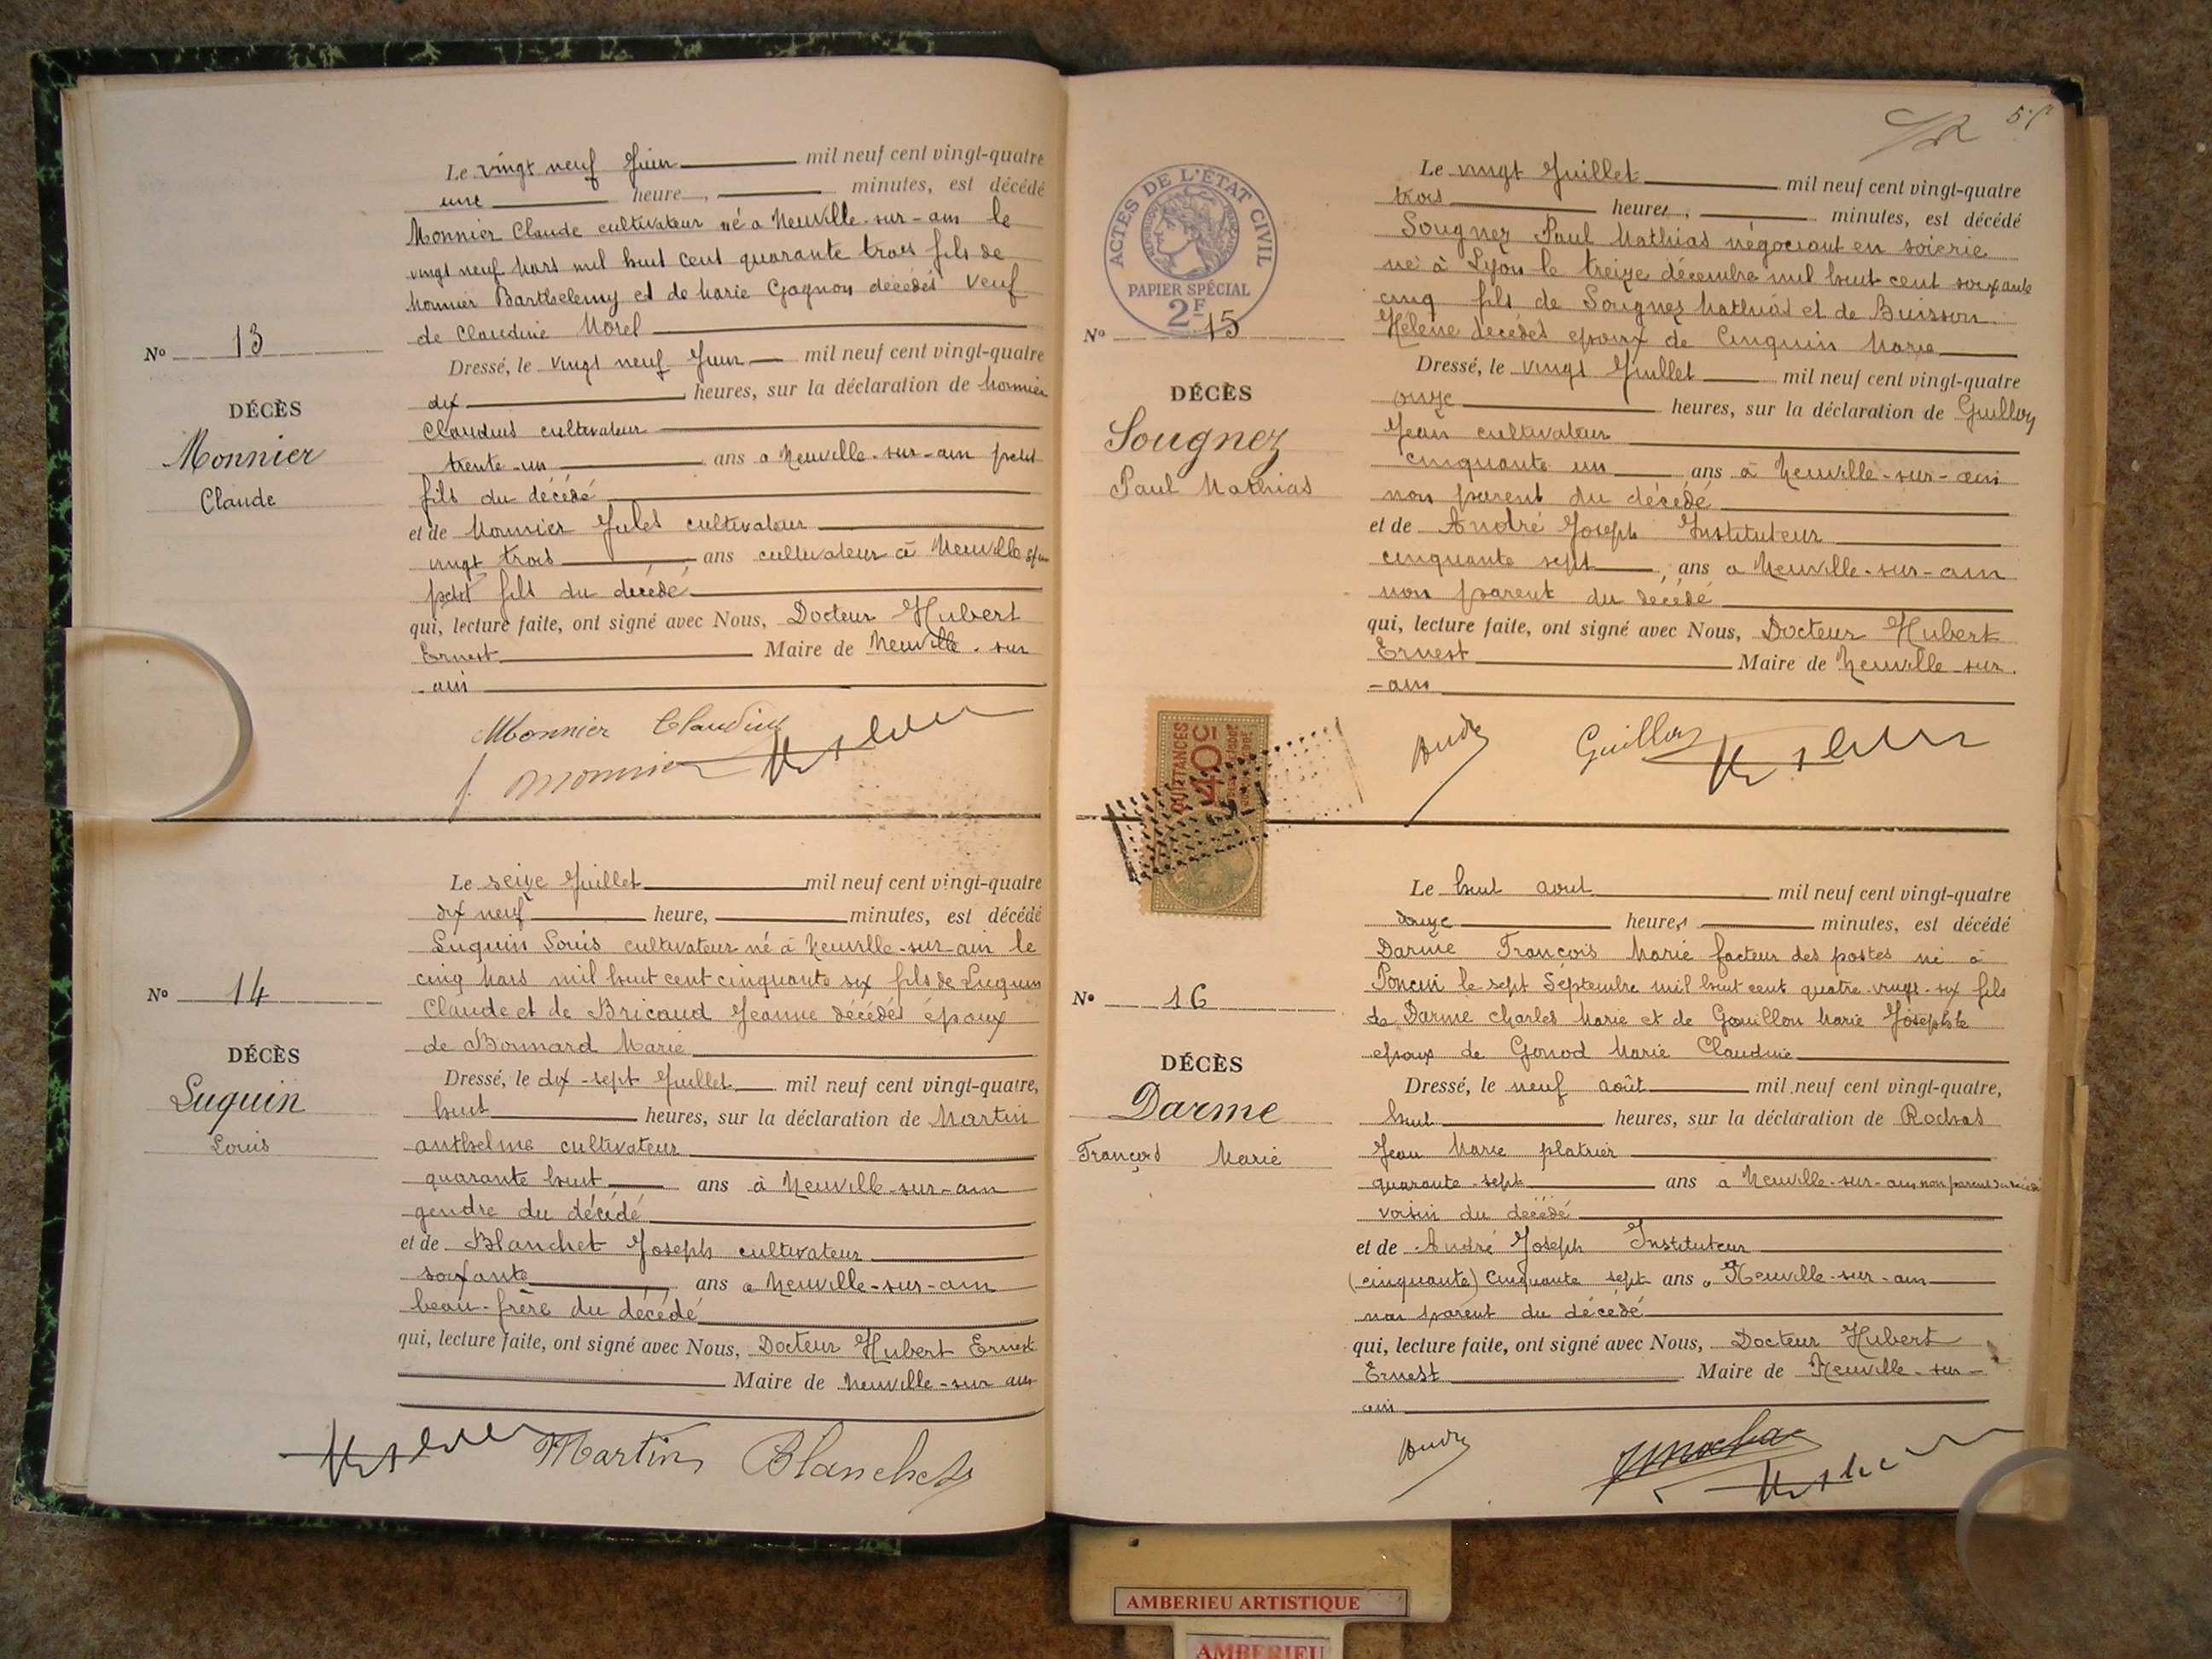 Le vingt neuf Juin mil neuf cent vingt-quatre
une heure, minutes, est décédé
Monnier Claude cultivateur né a Neuville-sur-ain le
vingt neuf Mars mil huit cent quarante trois fils de
Monnier Barthelemy et de Marie Gagnon décédés veuf
de Claudine Morel
No 13
Dressé, le vingt neuf Juin mil neuf cent vingt-quatre
dix heures, sur la déclaration de Monnier
DÉCÈS
Monnier
Claude
Claudius cultivateur
trente-un ans a Neuville-sur-ain petit
fils du décédé
et de Monnier Jules cultivateur
vingt trois ans cultivateur à Neuville
petit fils du décédé
qui, lecture faite, ont signé avec Nous, Docteur Hubert
Ernest Maire de Neuville-sur
-ain
Monnier Claudius
J. Monnier
Le seize Juillet mil neuf cent vingt-quatre
dix neuf heure, minutes, est décédé
Luquin Louis cultivateur né à Neuville-sur-ain le
cinq Mars mil huit cent cinquante six fils de Luquin
Claude et de Bricaud Jeanne décédés époux
de Bonnard Marie
No 14
DÉCÈS
Luquin
Louis
Dressé, le dix-sept Juillet mil neuf cent vingt-quatre,
huit heures, sur la déclaration de Martin
anthelme cultivateur
quarante huit ans à Neuville-sur-ain
gendre du décédé
et de Blanchet Joseph cultivateur
soixante ans a Neuville-sur-ain
beau-frère du décédé
qui, lecture faite, ont signé avec Nous, Docteur Hubert Ernest
Maire de Neuville-sur ain
Martin Blanchet
ACTES DE L'ÉTAT CIVIL
RÉPUBLIQUE FRANÇAISE
PAPIER SPÉCIAL
2F
Le vingt Juillet mil neuf cent vingt-quatre
trois heures, minutes, est décédé
Sougnez Paul Mathias négociant en soierie
né à Lyon le treize décembre mil huit cent soixante
cinq fils de Sougnez Mathias et de Buisson
Hélène décédés époux de Cinquin Marie
No 15
DÉCÈS
Sougnez
Paul Mathias
Dressé, le vingt Juillet mil neuf cent vingt-quatre
onze heures, sur la déclaration de Guillon
Jean cultivateur
cinquante un ans à Neuville-sur-ain
non parent du décédé
et de André Joseph Instituteur
cinquante sept ans a Neuville-sur-ain
non parent du décédé
qui, lecture faite, ont signé avec Nous, Docteur Hubert
Ernest Maire de Neuville-sur
-ain
QUITTANCES
40c
André Guillon
Le huit aout mil neuf cent vingt-quatre
heures minutes, est décédé
Darme François Marie facteur des postes né à
Poncin le sept Septembre mil huit cent quatre-vingt-six fils
de Darme Charles Marie et de Gouillon Marie Josephte
époux de Gonod Marie Claudine
No 16
DÉCÈS
Darme
François Marie
Dressé, le neuf août mil neuf cent vingt-quatre,
huit heures, sur la déclaration de Rochas
Jean Marie platrier
quarante-sept ans à Neuville-sur-ain non parent du décédé
voisin du décédé
et de André Joseph Instituteur
(cinquante) cinquante sept ans a Neuville-sur-ain
non parent du décédé
qui, lecture faite, ont signé avec Nous, Docteur Hubert
Ernest Maire de Neuville-sur-
ain
André
AMBERIEU ARTISTIQUE
AMBERIEU